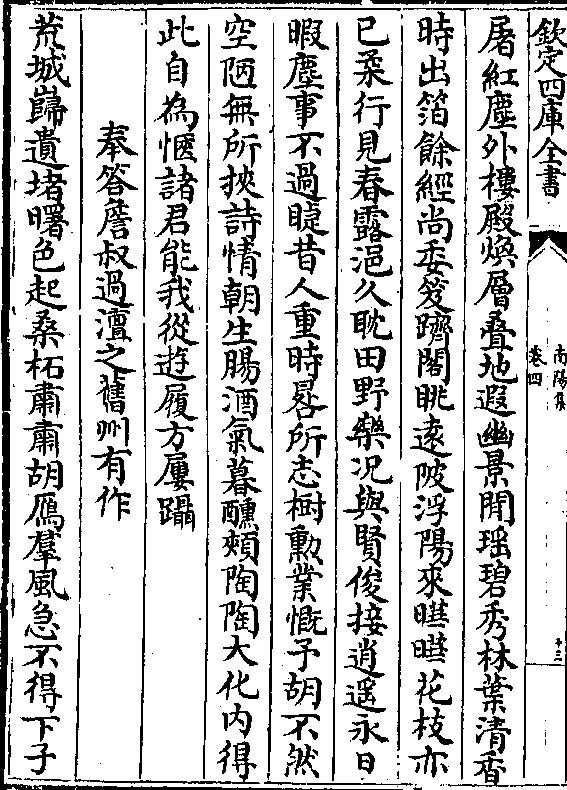 欽定四庫全書
南陽集
卷四
十三
屠紅塵外樓殿煥層疊地遐幽景閒瑶碧秀林葉清香
時出箔餘經尚委笈躋閣眺遠陂浮陽來曄曄花枝亦
已柔行見春露浥久耽田野樂况與賢俊接逍遥永日
暇塵事不過睫昔人重時晷所志樹勲業慨予胡不然
空陋無所挾詩情朝生腸酒氣暮醺頰陶陶大化内得
此自為愜諸君能我從遊履方屢躡
奉答詹叔過澶之舊州有作
荒城巋遺堵曙色起桑柘肅肅胡鴈羣風急不得下子